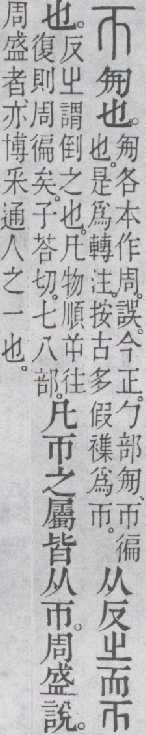 帀𠣘也。𠣘各本作周。誤。今正。勹部𠣘、帀徧也。是爲轉注。按古多假襍爲帀。从反㞢而帀
也。反㞢謂倒之也。凡物順屰往復則周徧矣。子荅切。七八部。凡帀之屬皆从帀。周盛說。
周盛者、亦博采通人之一也。